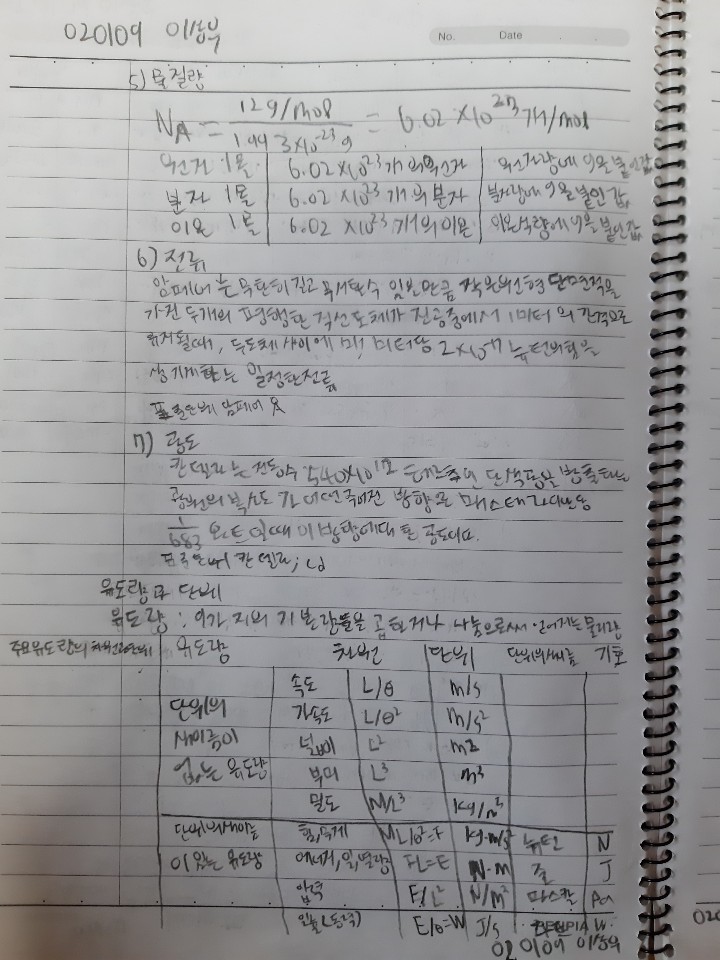 020109 이상부
No. Date
5) 물질량
NA = 12g/mol / 1.993×10⁻²³g = 6.02×10²³개/mol
원자 1몰 6.02×10²³개의 원자 원자량에 g을 붙인값
분자 1몰 6.02×10²³개의 분자 분자량에 g을 붙인 값
이온 1몰 6.02×10²³개의 이온 이온식량에 g을 붙인값
6) 전류
암페어는 무한히 길고 무시할수 있을만큼 작은 원형 단면적을
가진 두개의 평행한 직선도체가 진공중에서 1미터의 간격으로
유지될때, 두 도체 사이에 매 미터당 2×10⁻⁷ 뉴턴의 힘을
생기게 하는 일정한 전류
표준단위 암페어 A
7) 광도
칸델라는 진동수 540×10¹² 헤르츠인 단색광을 방출하는
광원의 복사도가 어떤 주어진 방향으로 매 스테라디안당
1/683 와트일때 이 방향에 대한 광도이다.
표준단위 칸델라; cd
유도량과 단위
유도량 : 여가지의 기본량들을 곱하거나 나눔으로써 얻어지는 물리량
주요유도량의 차원과 단위 유도량 차원 단위 단위의 이름 기호
속도 L/θ m/s
단위의 가속도 L/θ² m/s²
이름이 넓이 L² m2
없는 유도량 부피 L³ m³
밀도 M/L³ kg/m³
단위의 이름 힘, 무게 ML/θ²=F kg·m/s² 뉴턴 N
이 있는 유도량 에너지, 일, 열량 FL=E N·m 줄 J
압력 F/L² N/m² 파스칼 Pa
일률(동력) E/θ=W J/s W
020109 이상부